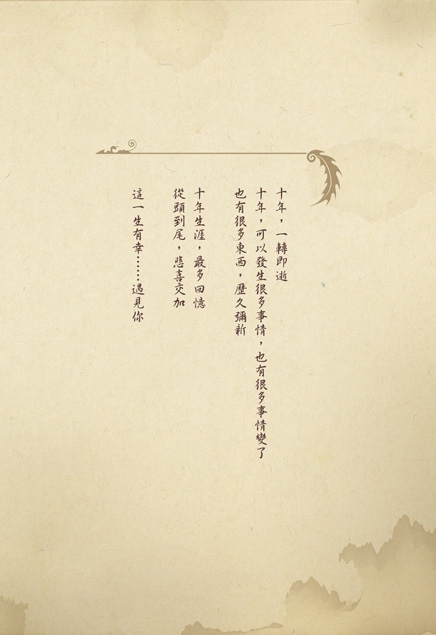 十年，一轉即逝
十年，可以發生很多事情，也有很多事情變了
也有很多東西，歷久彌新
十年生涯，最多回憶
從頭到尾，悲喜交加
這一生有幸……遇見你